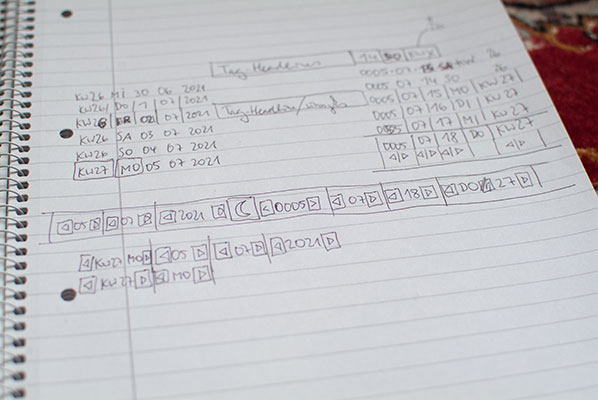 Tag-Headerium
14 SO KWX
KW26 MI 30 06 2021
KW26 DO 1 07 2021
KW26 FR 02 07 2021
KW26 SA 03 07 2021
KW26 SO 04 07 2021
KW27 MO 05 07 2021
0005 07
0005 07 14 SO 26
0005 07 15 MO KW27
0005 07 16 DI KW27
0005 07 17 MI KW27
0005 07 18 DO KW27
◁▷ ◁▷ ◁▷ ◁▷
◁ 05 ▷ ◁ 07 ▷ ◁ 2021 ▷ ☾ ◁ 0005 ▷ ◁ 07 ▷ ◁ 18 ▷ ◁ DO 27 ▷
◁ KW27 MO ▷ ◁ 05 ▷ ◁ 07 ▷ ◁ 2021 ▷
◁ KW27 ▷ ◁ MO ▷